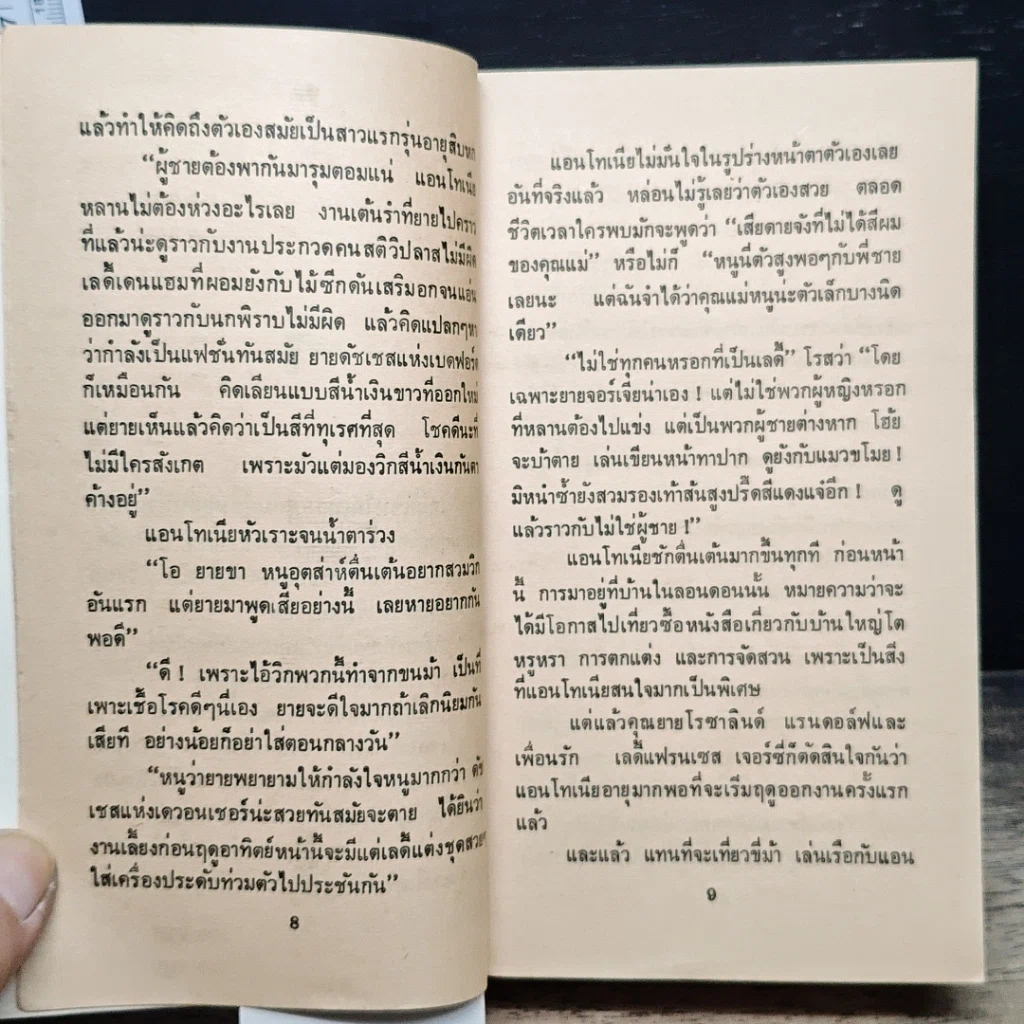 แล้วทำให้คิดถึงตัวเองสมัยเป็นสาวแรกรุ่นอายุสิบหก
“ผู้ชายต้องพากันมารุมตอมแน่ แอนโทเนีย
หลานไม่ต้องห่วงอะไรเลย งานเต้นรำที่ยายไปคราว
ที่แล้วน่ะดูราวกับงานประกวดคนสติวิปลาสไม่มีผิด
เลดี้เดนแฮมที่ผอมยังกับไม้ซีกดันเสริมอกจนแอ่น
ออกมาดูราวกับนกพิราบไม่มีผิด แล้วคิดแปลกๆหา
ว่ากำลังเป็นแฟชั่นทันสมัย ยายดัชเชสแห่งเบดฟอร์ด
ก็เหมือนกัน คิดเลียนแบบสีน้ำเงินขาวที่ออกใหม่
แต่ยายเห็นแล้วคิดว่าเป็นสีที่ทุเรศที่สุด โชคดีนะที่
ไม่มีใครสังเกต เพราะมัวแต่มองวิกสีน้ำเงินกันตา
ค้างอยู่”
แอนโทเนียหัวเราะจนน้ำตาร่วง
“โอ ยายขา หนูอุตส่าห์ตื่นเต้นอยากสวมวิก
อันแรก แต่ยายมาพูดเสียอย่างนี้ เลยหายอยากกัน
พอดี”
“ดี ! เพราะไอ้วิกพวกนี้ทำจากขนม้า เป็นที่
เพาะเชื้อโรคดีๆนี่เอง ยายจะดีใจมากถ้าเลิกนิยมกัน
เสียที อย่างน้อยก็อย่าใส่ตอนกลางวัน”
“หนูว่ายายพยายามให้กำลังใจหนูมากกว่า ดัช
เชสแห่งเดวอนเชอร์น่ะสวยทันสมัยจะตาย ได้ยินว่า
งานเลี้ยงก่อนฤดูอาทิตย์หน้านี้จะมีแต่เลดี้แต่งชุดสวยๆ
ใส่เครื่องประดับท่วมตัวไปประชันกัน”
8
แอนโทเนียไม่มั่นใจในรูปร่างหน้าตาตัวเองเลย
อันที่จริงแล้ว หล่อนไม่รู้เลยว่าตัวเองสวย ตลอด
ชีวิตเวลาใครพบมักจะพูดว่า “เสียดายจังที่ไม่ได้สีผม
ของคุณแม่” หรือไม่ก็ “หนูนี่ตัวสูงพอๆกับพี่ชาย
เลยนะ แต่ฉันจำได้ว่าคุณแม่หนูน่ะตัวเล็กบางนิด
เดียว”
“ไม่ใช่ทุกคนหรอกที่เป็นเลดี้” โรสว่า “โดย
เฉพาะยายจอร์เจียน่าเอง ! แต่ไม่ใช่พวกผู้หญิงหรอก
ที่หลานต้องไปแข่ง แต่เป็นพวกผู้ชายต่างหาก โฮ้ย
จะบ้าตาย เล่นเขียนหน้าทาปาก ดูยังกับแมวขโมย !
มิหนำซ้ำยังสวมรองเท้าส้นสูงปรี๊ดสีแดงแจ๋อีก ! ดู
แล้วราวกับไม่ใช่ผู้ชาย !”
แอนโทเนียชักตื่นเต้นมากขึ้นทุกที ก่อนหน้า
นี้ การมาอยู่ที่บ้านในลอนดอนนั้น หมายความว่าจะ
ได้มีโอกาสไปเที่ยวซื้อหนังสือเกี่ยวกับบ้านใหญ่โต
หรูหรา การตกแต่ง และการจัดสวน เพราะเป็นสิ่ง
ที่แอนโทเนียสนใจมากเป็นพิเศษ
แต่แล้วคุณยายโรซาลินด์ แรนดอล์ฟและ
เพื่อนรัก เลดี้แฟรนเซส เจอร์ซี่ก็ตัดสินใจกันว่า
แอนโทเนียอายุมากพอที่จะเริ่มฤดูออกงานครั้งแรก
แล้ว
และแล้ว แทนที่จะเที่ยวขี่ม้า เล่นเรือกับแอน
9